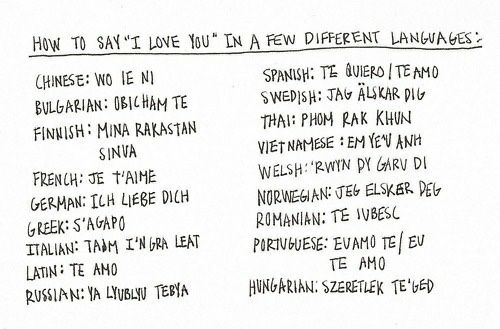 HOW TO SAY "I LOVE YOU" IN A FEW DIFFERENT LANGUAGES:
CHINESE: WO IE NI
BULGARIAN: OBICHAM TE
FINNISH: MINA RAKASTAN
SINVA
FRENCH: JE T'AIME
GERMAN: ICH LIEBE DICH
GREEK: S'AGAPO
ITALIAN: TAIM I'N GRA LEAT
LATIN: TE AMO
RUSSIAN: YA LYUBLYU TEBYA
SPANISH: TE QUIERO/TE AMO
SWEDISH: JAG ÄLSKAR DIG
THAI: PHOM RAK KHUN
VIETNAMESE: EM YE'U ANH
WELSH: 'RWYN DY GARU DI
NORWEGIAN: JEG ELSKER DEG
ROMANIAN: TE IUBESC
PORTUGUESE: EU AMO TE/ EU
TE AMO
HUNGARIAN: SZERETLEK TE'GED